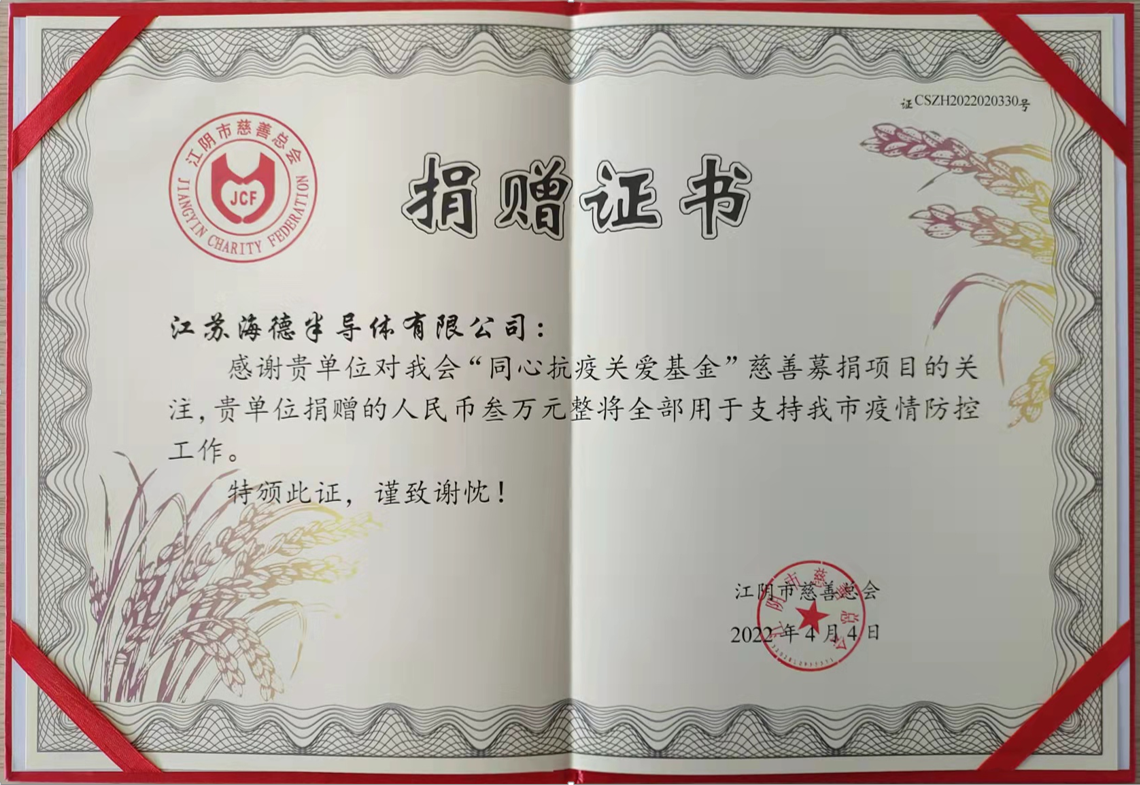 证CSZH2022020330号
江阴市慈善总会
JCF
JIANGYIN CHARITY FEDERATION
捐赠证书
江苏海德半导体有限公司：
感谢贵单位对我会“同心抗疫关爱基金”慈善募捐项目的关
注，贵单位捐赠的人民币叁万元整将全部用于支持我市疫情防控
工作。
特颁此证，谨致谢忱！
江阴市慈善总会
2022年4月4日
江阴市慈善总会